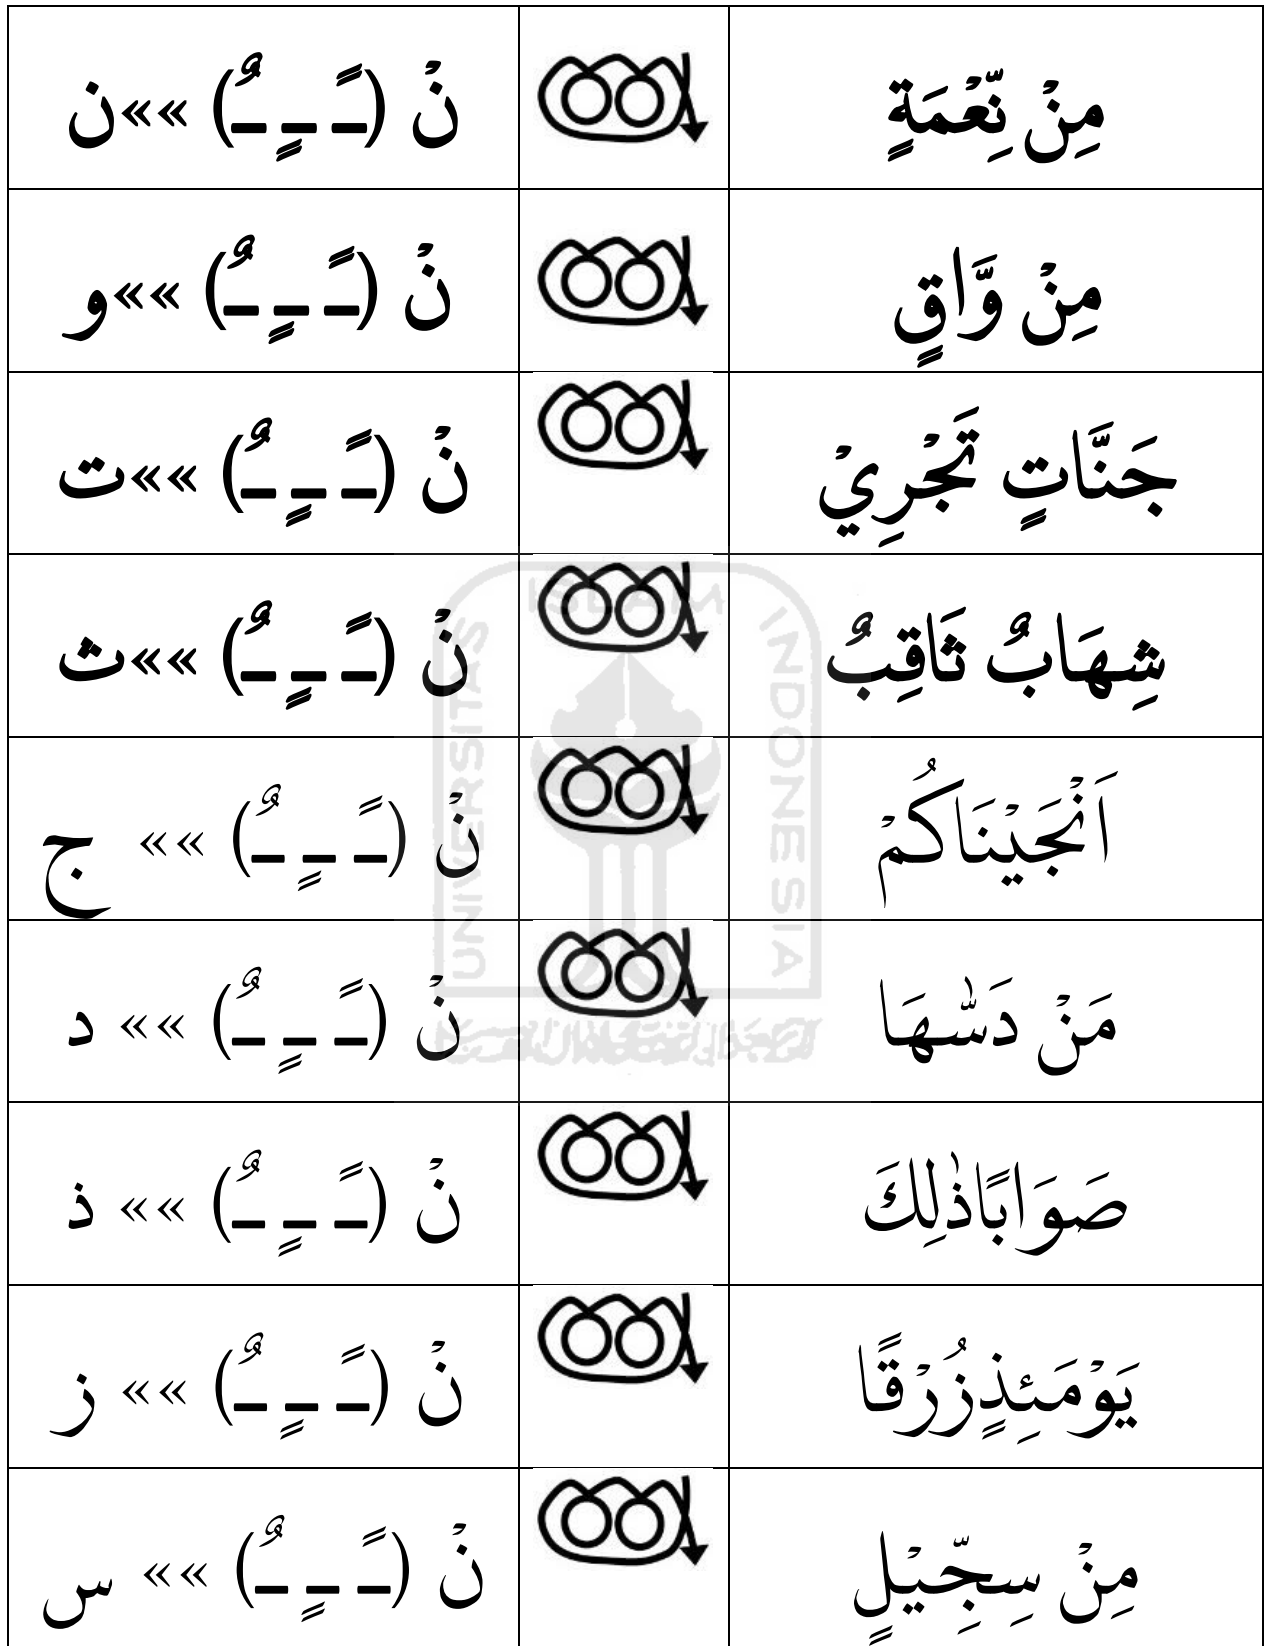 مِنْ نِّعْمَةٍ
نْ (ـً ـٍ ـٌ) »» ن
مِنْ وَّاقٍ
نْ (ـً ـٍ ـٌ) »» و
جَنَّاتٍ تَجْرِيْ
نْ (ـً ـٍ ـٌ) »» ت
شِهَابٌ ثَاقِبٌ
نْ (ـً ـٍ ـٌ) »» ث
اَنْجَيْنَاكُمْ
نْ (ـً ـٍ ـٌ) »» ج
مَنْ دَسّٰهَا
نْ (ـً ـٍ ـٌ) »» د
صَوَابًاذٰلِكَ
نْ (ـً ـٍ ـٌ) »» ذ
يَوْمَئِذٍزُرْقًا
نْ (ـً ـٍ ـٌ) »» ز
مِنْ سِجِّيْلٍ
نْ (ـً ـٍ ـٌ) »» س
UNIVERSITAS ISLAM INDONESIA